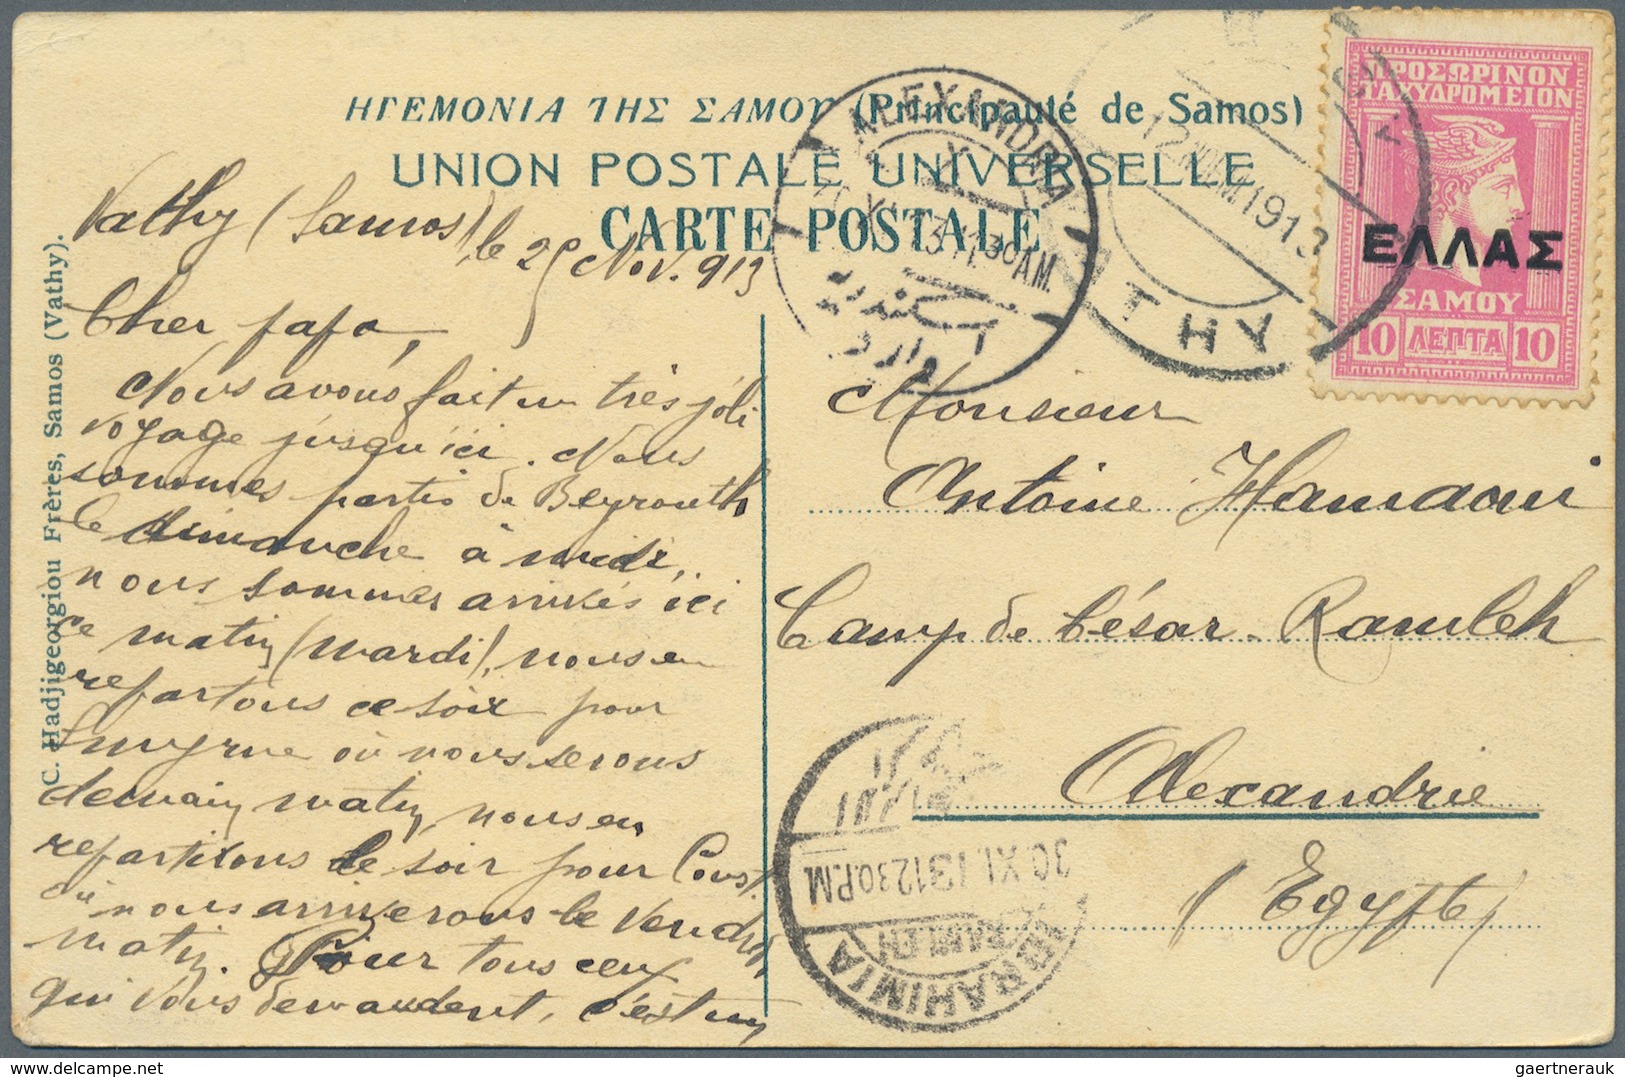 ΗΓΕΜΟΝΙΑ ΤΗΣ ΣΑΜΟΥ (Principauté de Samos)
UNION POSTALE UNIVERSELLE
CARTE POSTALE
C. Hadjigeorgiou Frères, Samos (Vathy).
Vathy (Samos), le 25 Nov. 913
Cher papa,
Nous avons fait un très joli
voyage jusqu'ici. Nous
sommes partis de Beyrouth
le dimanche à midi,
nous sommes arrivés ici
ce matin (mardi), nous en
repartons ce soir pour
Smyrne où nous serons
demain matin, nous en
repartirons le soir pour Const.
où nous arriverons le vendredi
matin. Pour tous ceux
qui vous demandent, c'est un
Monsieur
Antoine Hamaoui
Camp de César. Ramleh
Alexandrie
(Egypte)
ΠΡΟΣΩΡΙΝΟΝ
ΤΑΧΥΔΡΟΜΕΙΟΝ
ΕΛΛΑΣ
ΣΑΜΟΥ
10 ΛΕΠΤΑ 10
12 ΝΟΕΜ 1913
ΑΤΗΥ
ALEXANDRIA
11 30 AM.
اسكندرية
وارد
30.XI.13 12 30.P.M
IBRAHIMIA
RAMLEH
gaertnerauk